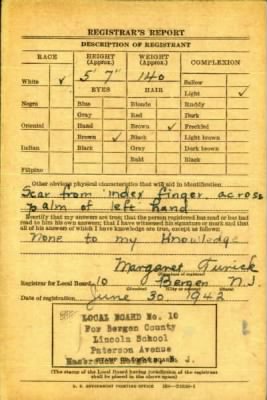 REGISTRAR'S REPORT
DESCRIPTION OF REGISTRANT
RACE HEIGHT (Approx.) WEIGHT (Approx.) COMPLEXION
White ✓ 5' 7" 140 Sallow
EYES HAIR Light ✓
Negro Blue Blonde Ruddy
Gray Red Dark
Oriental Hazel Brown ✓ Freckled
Brown ✓ Black Light brown
Indian Black Gray Dark brown
Bald Black
Filipino
Other obvious physical characteristics that will aid in identification
Scar from index finger across
palm of left hand
I certify that my answers are true; that the person registered has read or has had
read to him his own answers; that I have witnessed his signature or mark and that
all of his answers of which I have knowledge are true, except as follows:
None to my Knowledge
Margaret
Registrar for Local Board 10 Bergen N.J.
Date of registration June 30, 1942
LOCAL BOARD No. 10
For Bergen County
Lincoln School
Paterson Avenue
Hasbrouck Heights, N. J.
(The stamp of the Local Board having jurisdiction of the registrant
shall be placed in the above space)
U. S. GOVERNMENT PRINTING OFFICE